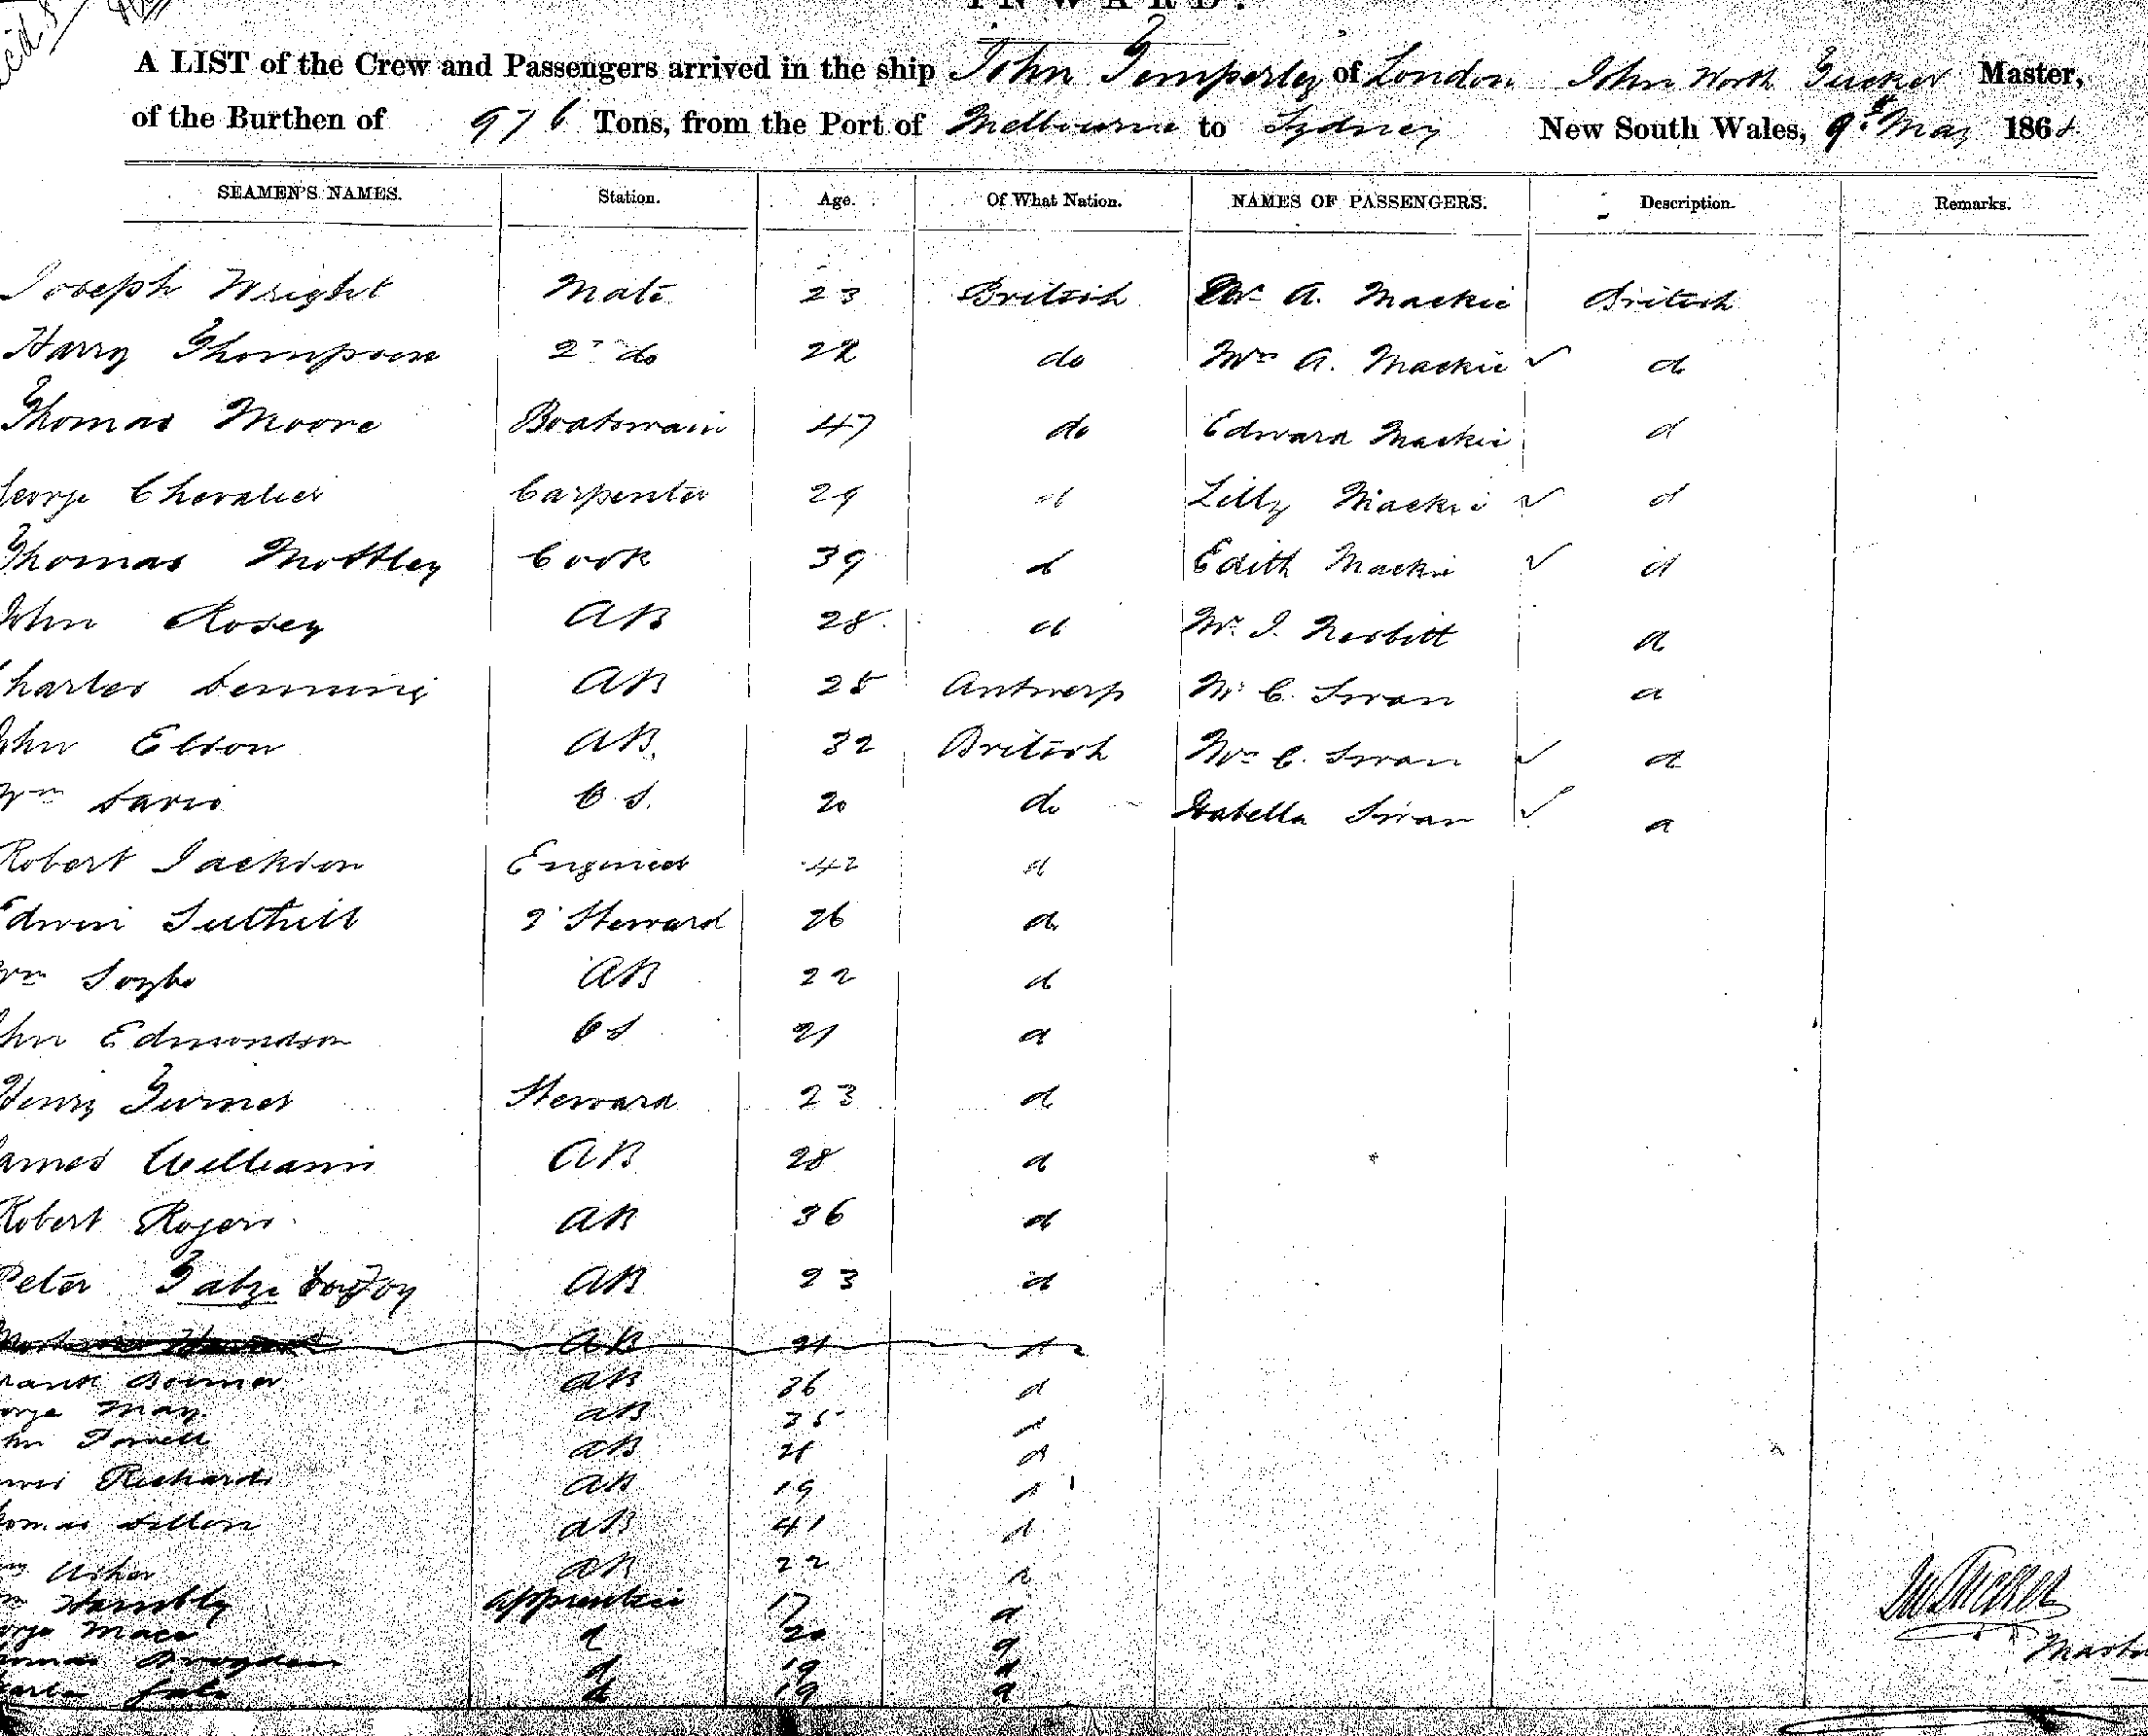 INWARD.
A LIST of the Crew and Passengers arrived in the ship John Temperley of London John North Tucker Master,
of the Burthen of 976 Tons, from the Port of Melbourne to Sydney New South Wales, 9th May 186
SEAMEN'S NAMES. Station. Age. Of What Nation. NAMES OF PASSENGERS. Description. Remarks.
Joseph Wright Mate 23 British Mr A. Mackie British
Harry Thompson 2nd do 22 do Mrs A. Mackie ✓ d
Thomas Moore Boatswain 47 do Edward Mackie d
George Chevalier Carpenter 29 d Lilly Mackie ✓ d
Thomas Mottley Cook 39 d Edith Mackie ✓ d
John Rosey AB 28 d Mr J. Nesbitt d
Charles AB 25 Antwerp Mr C. Swan d
John Elson AB 32 British Mrs C. Swan ✓ d
Wm Davis O S. 20 do Isabella Swan ✓ d
Robert Jackson Engineer 42 d
Edwin Tuthill 2 Steward 26 d
Wm AB 22 d
John Edmondson O S 21 d
Henry Turner Steward 23 d
James Williams AB 28 d
Robert Rogers AB 36 d
Peter AB 23 d
AB 21 d
Frank AB 36 d
George May AB 35 d
John Powell AB 21 d
James Richards AB 19 d
Thomas Dillon AB 41 d
Wm Usher AB 22 d
Wm Hambly Apprentice 17 d
George Mace d 20 d
Thomas Brogden d 19 d
Charles d 19 d
Tucker
Master